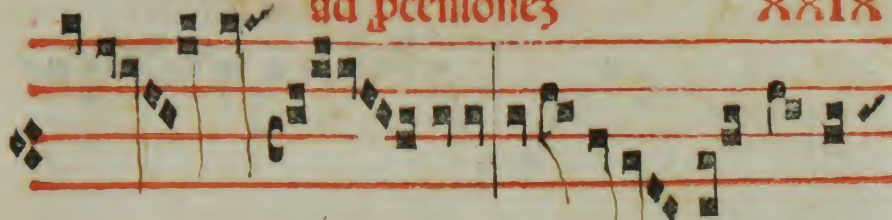 ad pcemionez XXIX